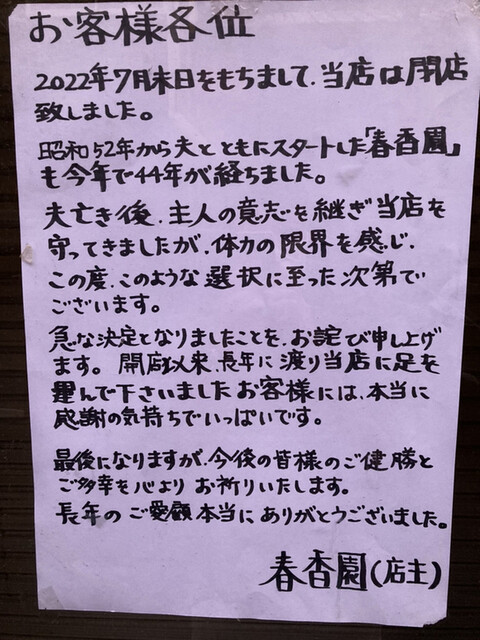 お客様各位
2022年7月末日をもちまして、当店は閉店
致しました。
昭和52年から夫とともにスタートした「春香園」
も今年で44年が経ちました。
夫亡き後、主人の意志を継ぎ当店を
守ってきましたが、体力の限界を感じ、
この度、このような選択に至った次第で
ございます。
急な決定となりましたことを、お詫び申し上げ
ます。開店以来、長年に渡り当店に足を
運んで下さいましたお客様には、本当に
感謝の気持ちでいっぱいです。
最後になりますが、今後の皆様のご健勝と
ご多幸を心より お祈りいたします。
長年の ご愛顧本当に ありがとうございました。
春香園(店主)